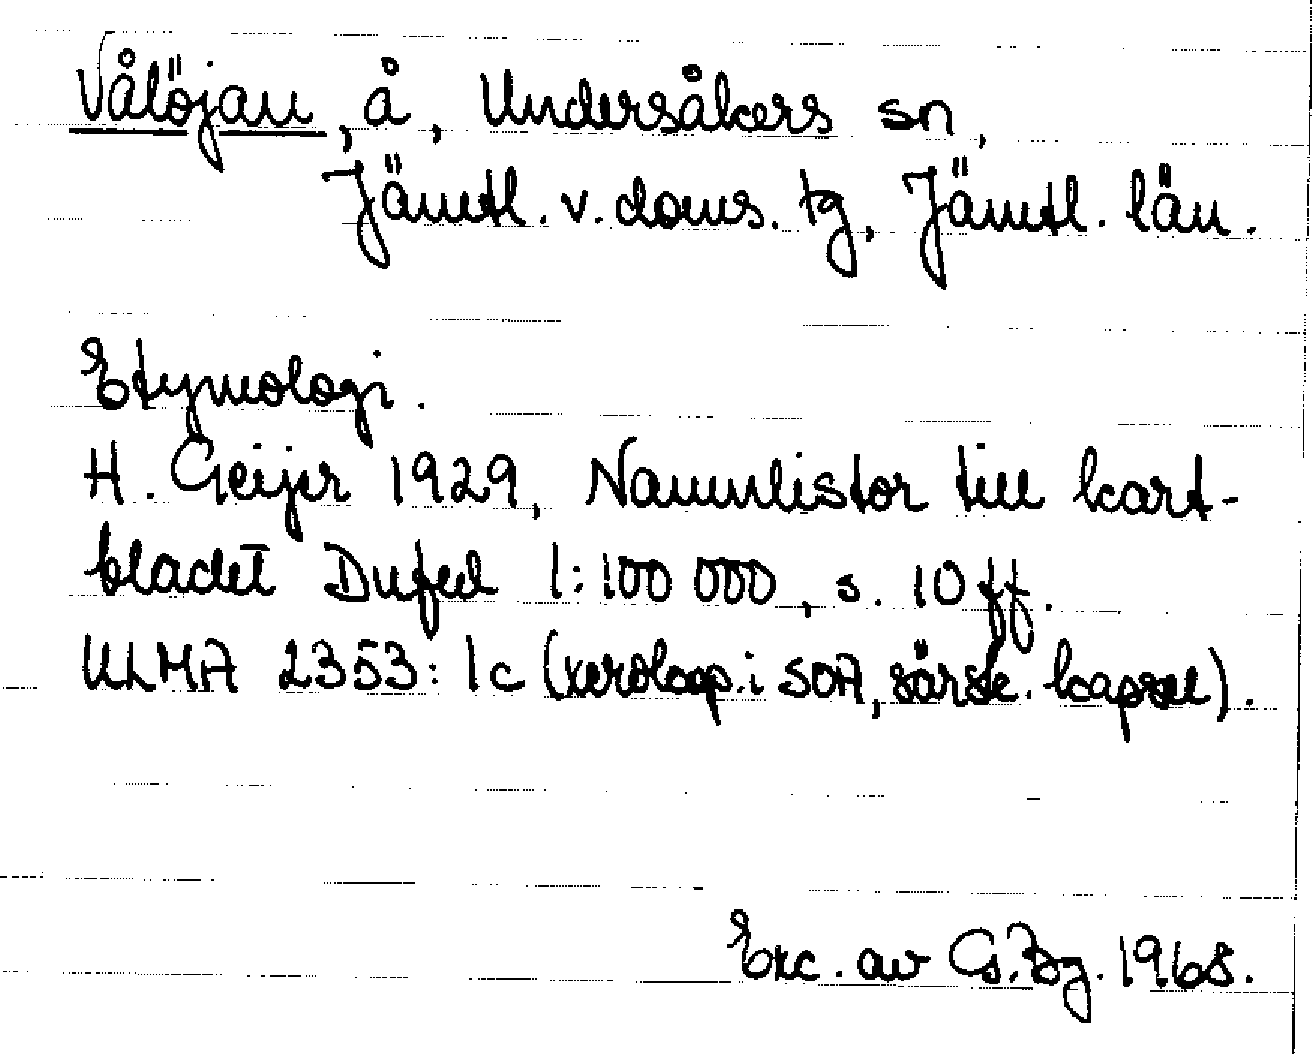 Vålöjan, å, Undersåkers sn,
Jämtl. v. doms. tg, Jämtl. län.
Etymologi.
H. Geijer 1929, Namnlistor till kart-
bladet Dufed 1:100 000, s. 10 ff.
ULMA 2353: 1c (xerokop. i SOA, särsk. kapsel).
Exc. av G. Bg. 1968.